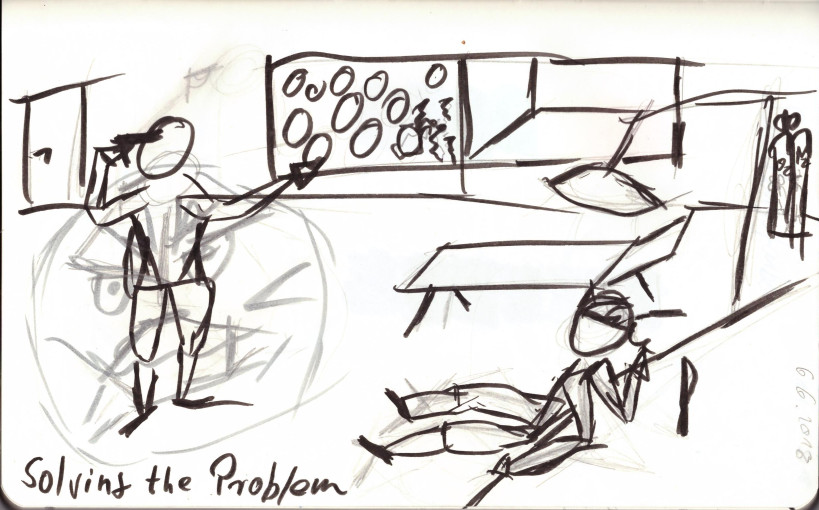 Solving the Problem
6 6. 2013